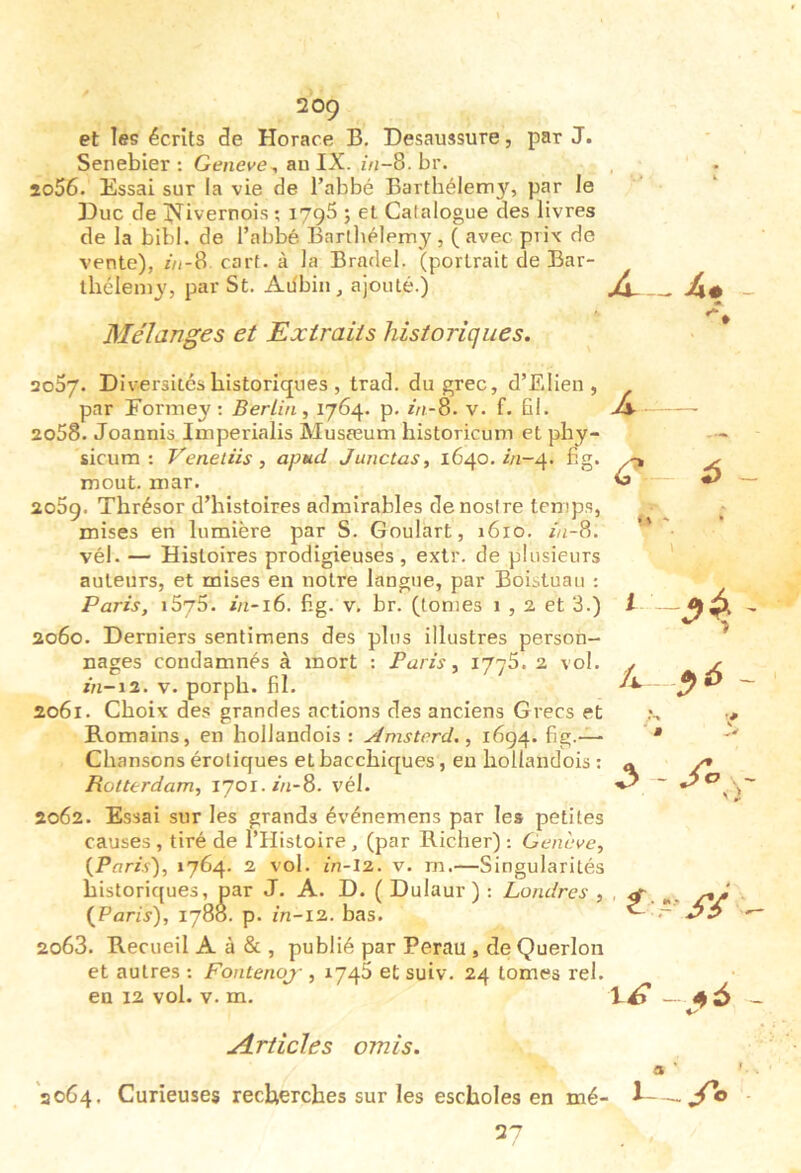 209
et les écrits de Horace B. Desaussure, par J.
Senebier : Geneve, an IX. in-8. br.
2056. Essai sur la vie de l'abbé Barthélemy, par le
Duc de Nivernois ; 1795 ; et Catalogue des livres
de la bibl. de l'abbé Barthélemy, (avec prix de
vente), in-8. cart. à la Bradel. (portrait de Bar-
thélemy, par St. Aubin, ajouté.)
Mélanges et Extraits historiques.
2057. Diversités historiques, trad. du grec, d'Elien,
par Formey : Berlin, 1764. p. in-8. v. f. fil.
2058. Joannis Imperialis Musæum historicum et phy-
sicum : Venetiis, apud Junctas, 1640. in-4. fig.
mout. mar.
2059. Thrésor d'histoires admirables de nostre temps,
mises en lumière par S. Goulart, 1610. in-8.
vél. — Histoires prodigieuses, extr. de plusieurs
auteurs, et mises en notre langue, par Boistuau :
Paris, 1575. in-16. fig. v. br. (tomes 1, 2 et 3.)
2060. Derniers sentimens des plus illustres person-
nages condamnés à mort : Paris, 1775. 2 vol.
in-12. v. porph. fil.
2061. Choix des grandes actions des anciens Grecs et
Romains, en hollandois : Amsterd., 1694. fig.—
Chansons érotiques et bacchiques, en hollandois :
Rotterdam, 1701. in-8. vél.
2062. Essai sur les grands événemens par les petites
causes, tiré de l'Histoire, (par Richer) : Genève,
(Paris), 1764. 2 vol. in-12. v. m.—Singularités
historiques, par J. A. D. (Dulaur) : Londres,
(Paris), 1788. p. in-12. bas.
2063. Recueil A à &, publié par Perau, de Querlon
et autres : Fontenoy, 1745 et suiv. 24 tomes rel.
en 12 vol. v. m.
Articles omis.
2064. Curieuses recherches sur les escholes en mé-
27